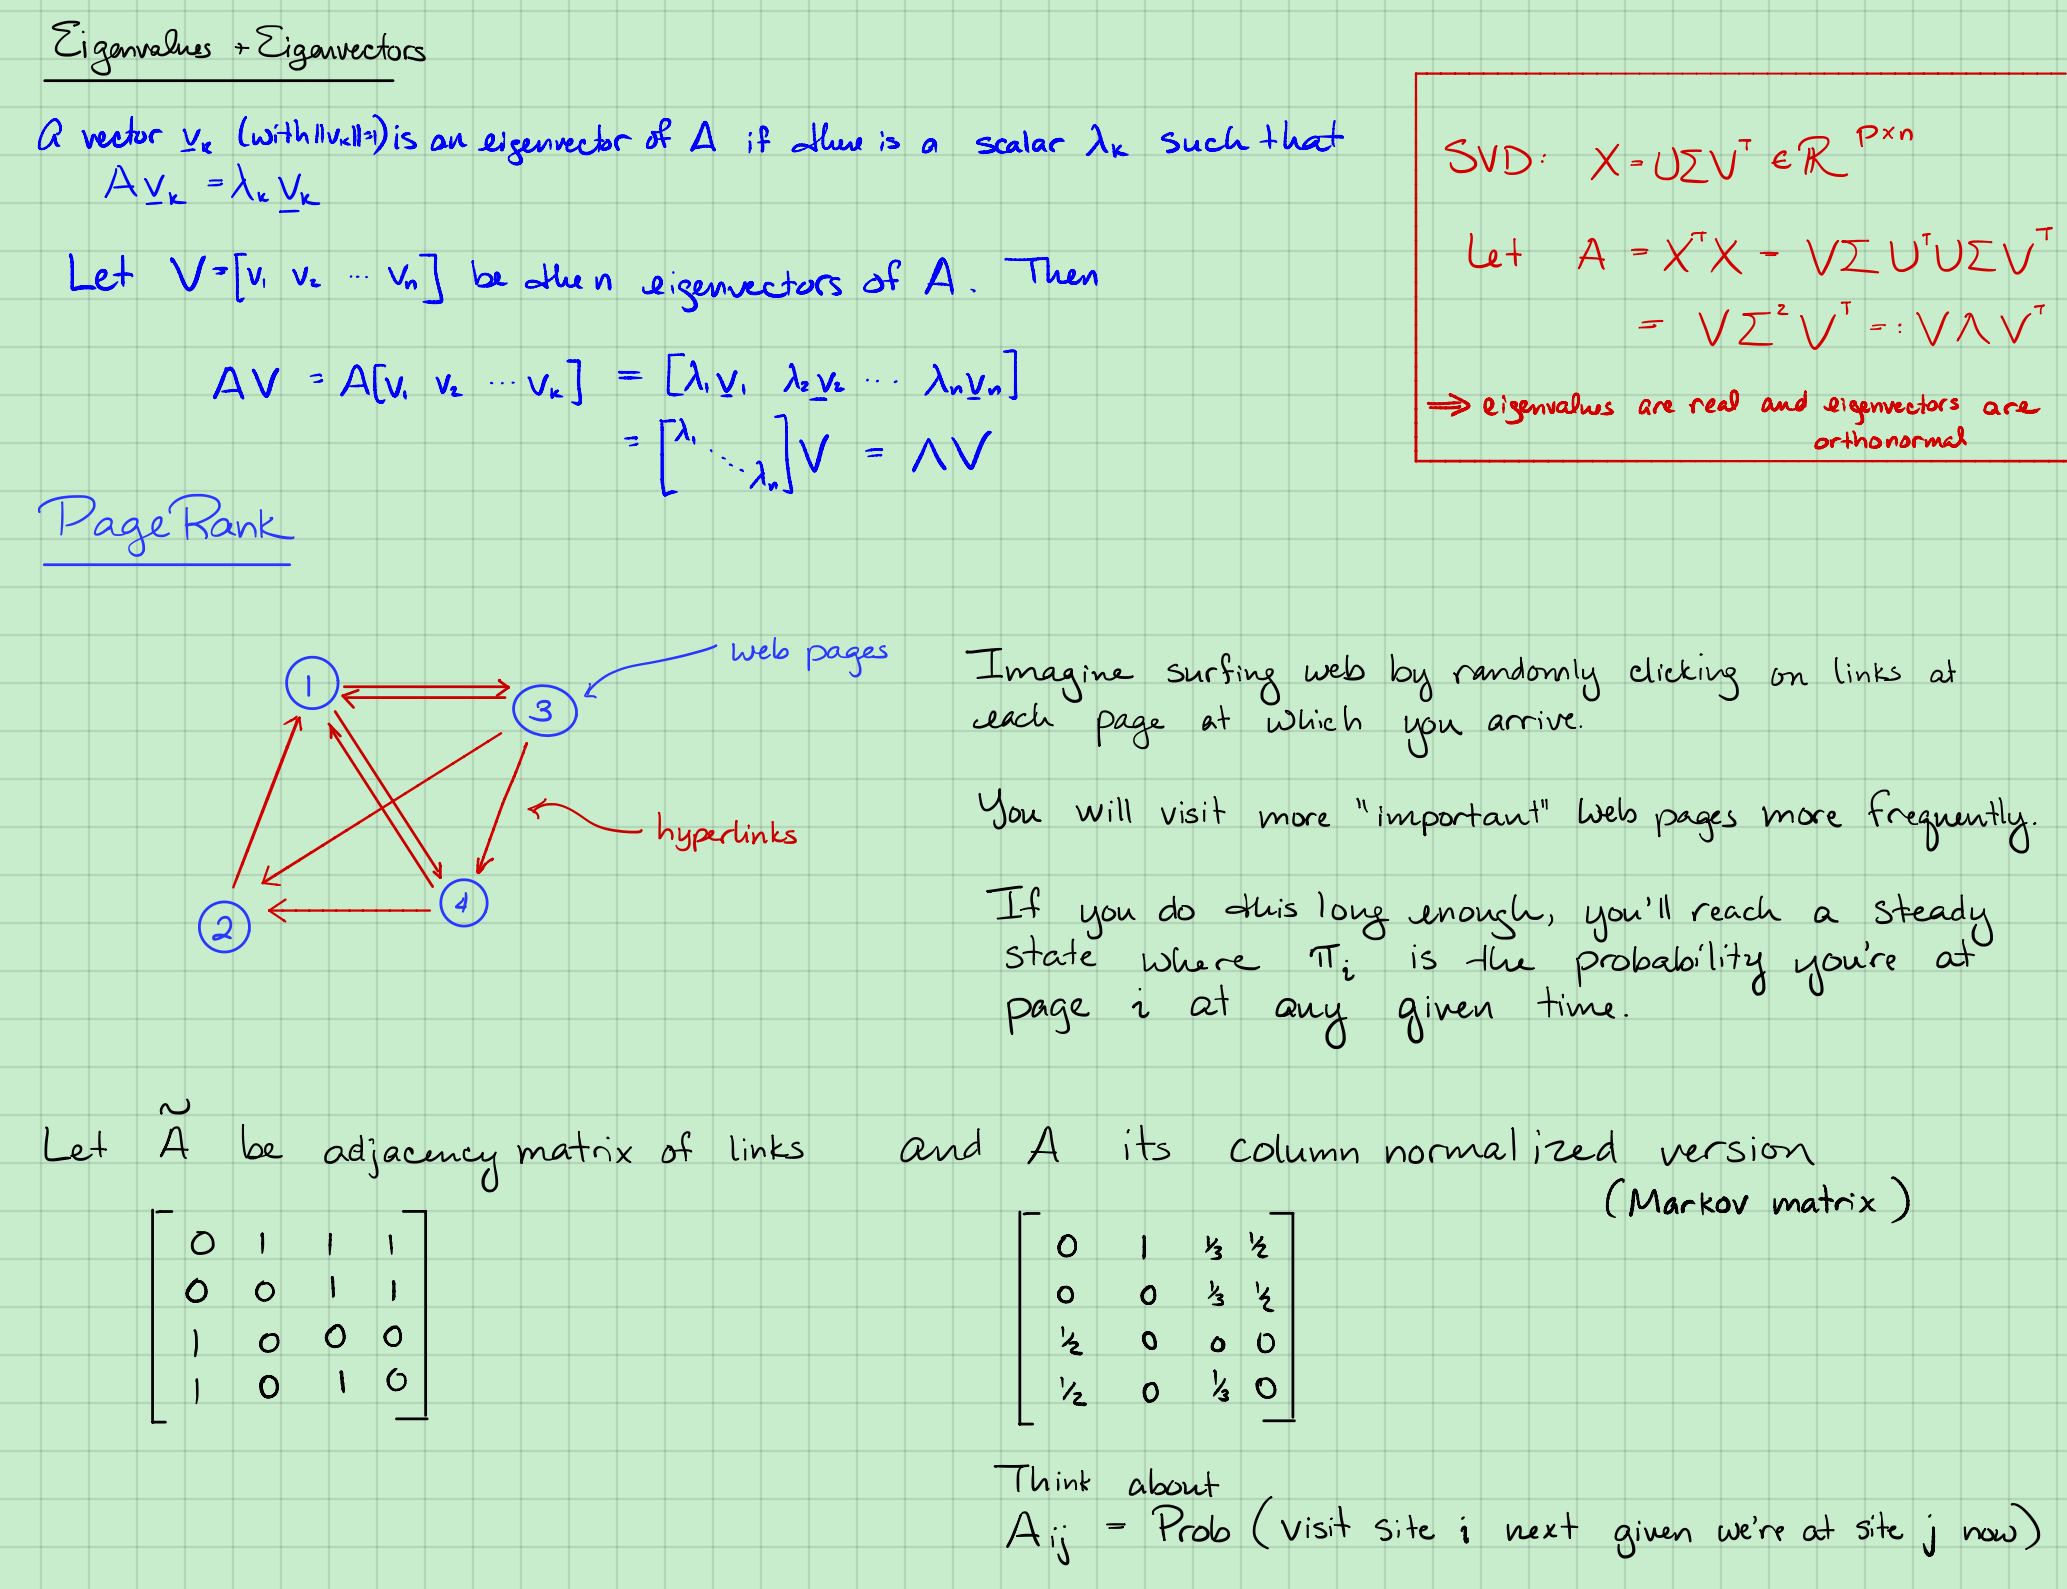 Eigenvalues + Eigenvectors
A vector v_k (with ||v_k||=1) is an eigenvector of A if there is a scalar λ_k such that
A v_k = λ_k v_k
Let V = [v_1 v_2 ... v_n] be the n eigenvectors of A. Then
AV = A[v_1 v_2 ... v_k] = [λ_1 v_1 λ_2 v_2 ... λ_n v_n]
= [λ_1 ⋱ λ_n] V = ΛV
SVD: X = UΣV^T ∈ ℝ^{p×n}
Let A = X^T X = VΣU^T UΣV^T
= VΣ^2 V^T =: VΛV^T
⟹ eigenvalues are real and eigenvectors are
orthonormal
PageRank
1
3
2
4
web pages
hyperlinks
Imagine surfing web by randomly clicking on links at
each page at which you arrive.
You will visit more "important" web pages more frequently.
If you do this long enough, you'll reach a steady
state where π_i is the probability you're at
page i at any given time.
Let Ã be adjacency matrix of links and A its column normalized version
(Markov matrix)
0 1 1 1
0 0 1 1
1 0 0 0
1 0 1 0
0 1 1/3 1/2
0 0 1/3 1/2
1/2 0 0 0
1/2 0 1/3 0
Think about
A_ij = Prob (visit site i next given we're at site j now)